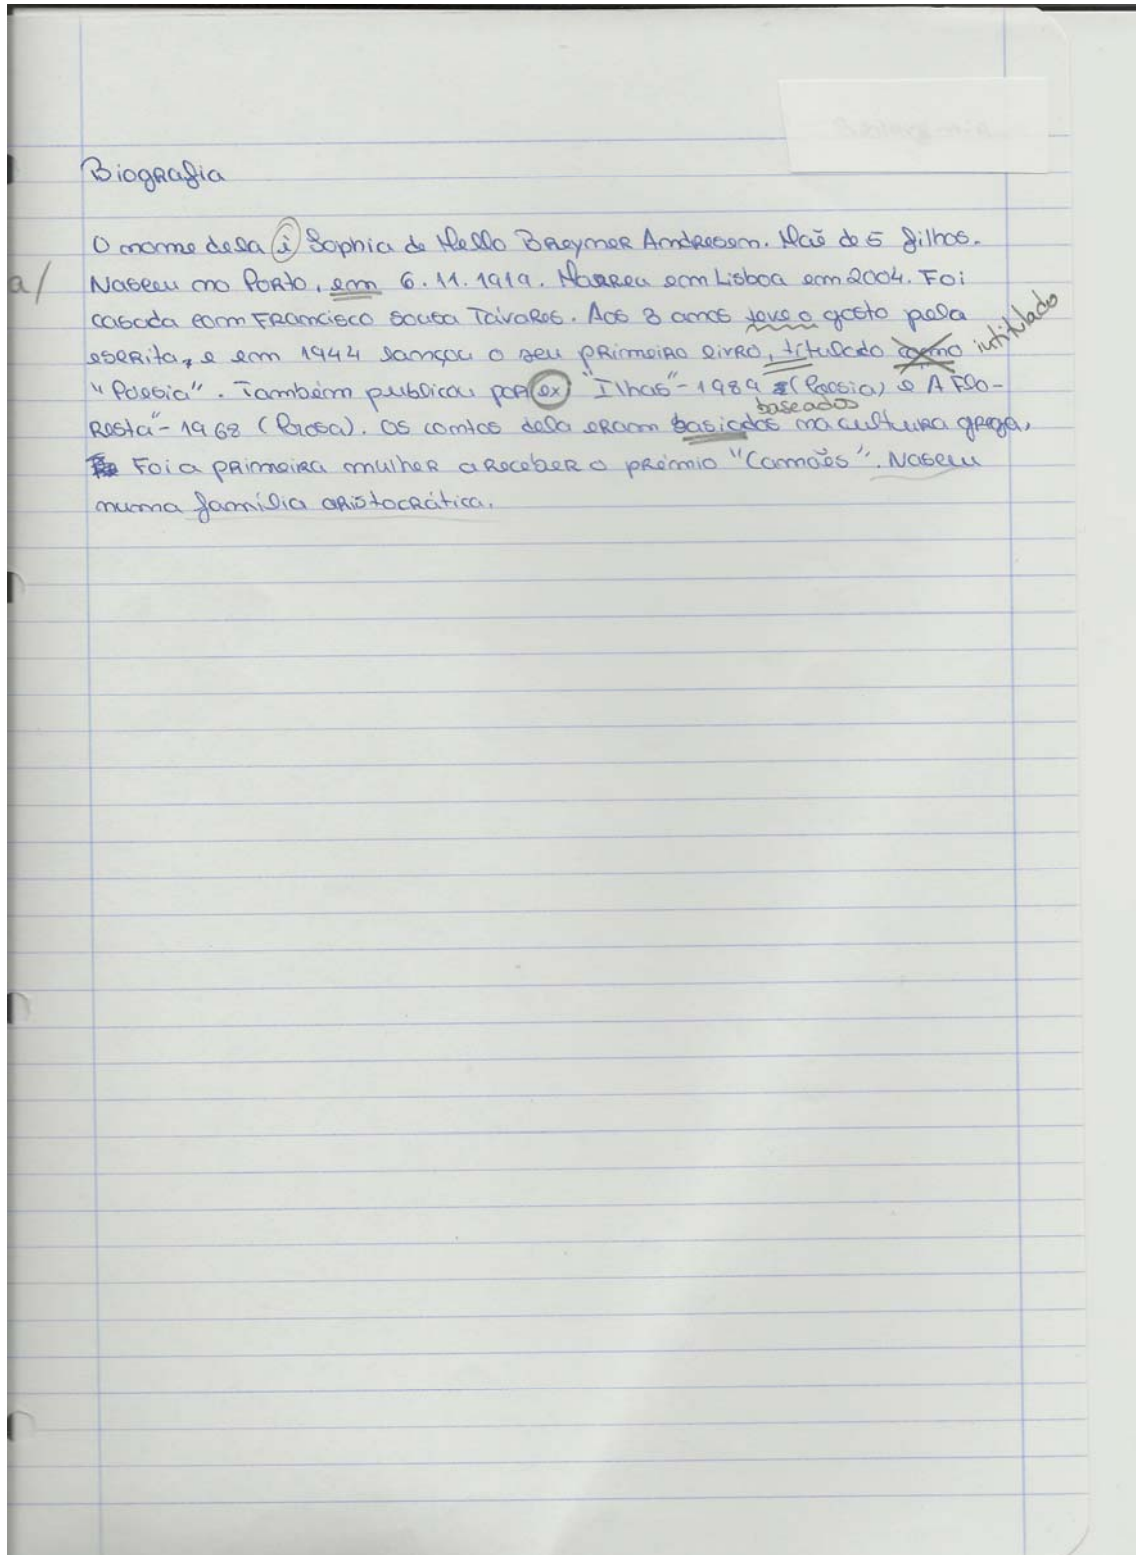 Biografia
O nome dela é Sophia de Mello Breymer Andresem. Mãe de 5 filhos.
a/ Nasceu no Porto, em 6.11.1919. Morreu em Lisboa em 2004. Foi
casada com Francisco Sousa Tavares. Aos 8 amos teve o gosto pela
escrita, e em 1944 lançou o seu primeiro livro, titulado como intitulado
"Poesia". Também publicou por ex "Ilhas" - 1989 (Poesia) e A Flo-
baseados
resta" - 1968 (Prosa). Os contos dela eram basiados na cultura grega,
Foi a primeira mulher a receber o prémio "Camões". Nasceu
numa família aristocrática.